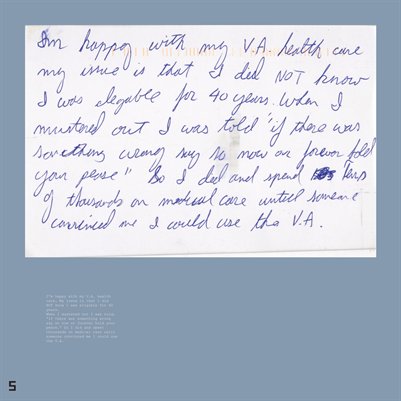 I'm happy with my V.A. health care
my issue is that I did NOT know
I was elegable for 40 years. When I
mustered out I was told "if there was
something wrong say so now or forever hold
your pease" So I did and spend tens
of thousands on medical care until someone
convinced me I could use the V.A.
I'm happy with my V.A. health
care. My issue is that I did
NOT know I was eligible for 40
years.
When I mustered out I was told
"if there was something wrong
say so now or forever hold your
peace." So I did and spent
thousands on medical care until
someone convinced me I could use
the V.A.
5